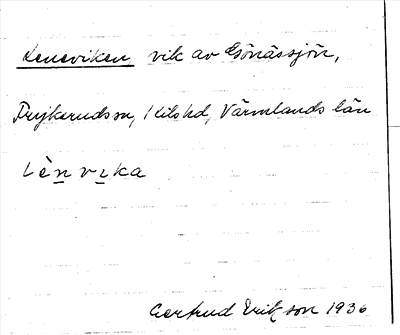 Leneviken, vik av Gönässjön,
Frykeruds sn, Kils hd, Värmlands län
Lènvika
Gertrud Erikson 1936